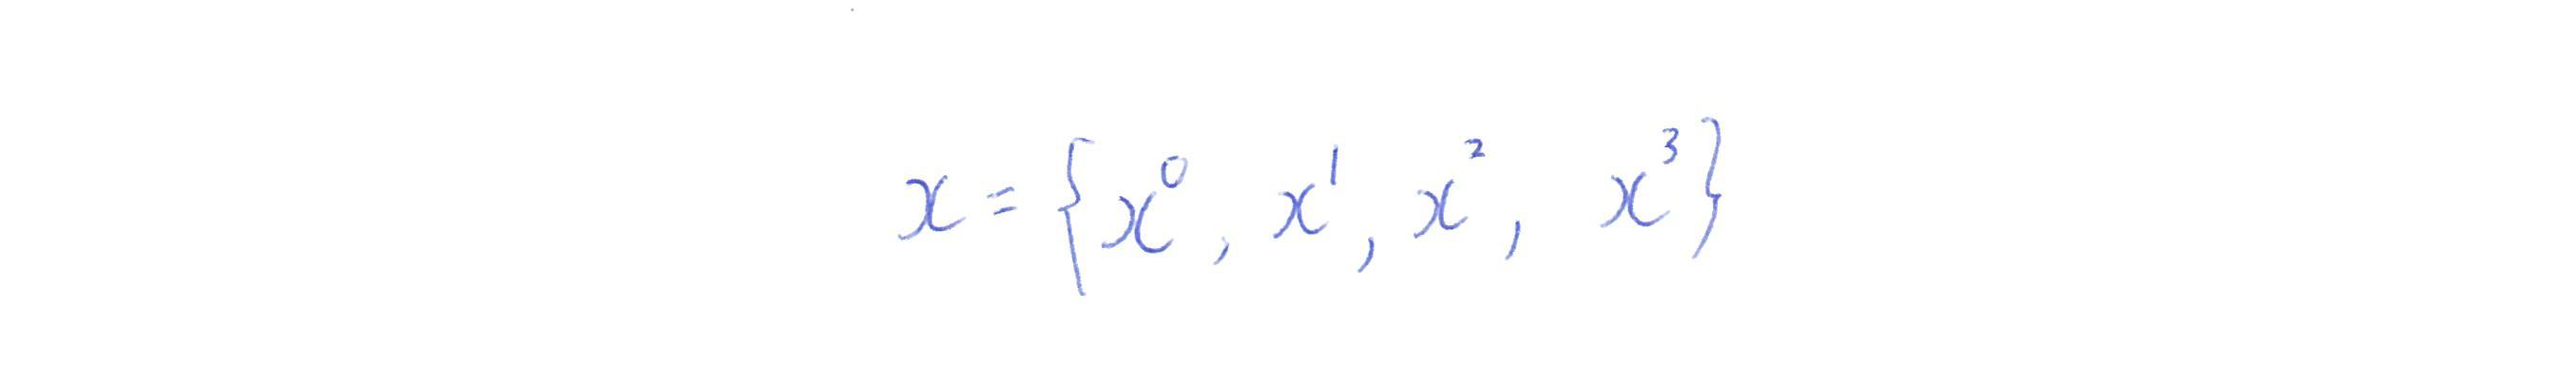 x = {x⁰, x¹, x², x³}